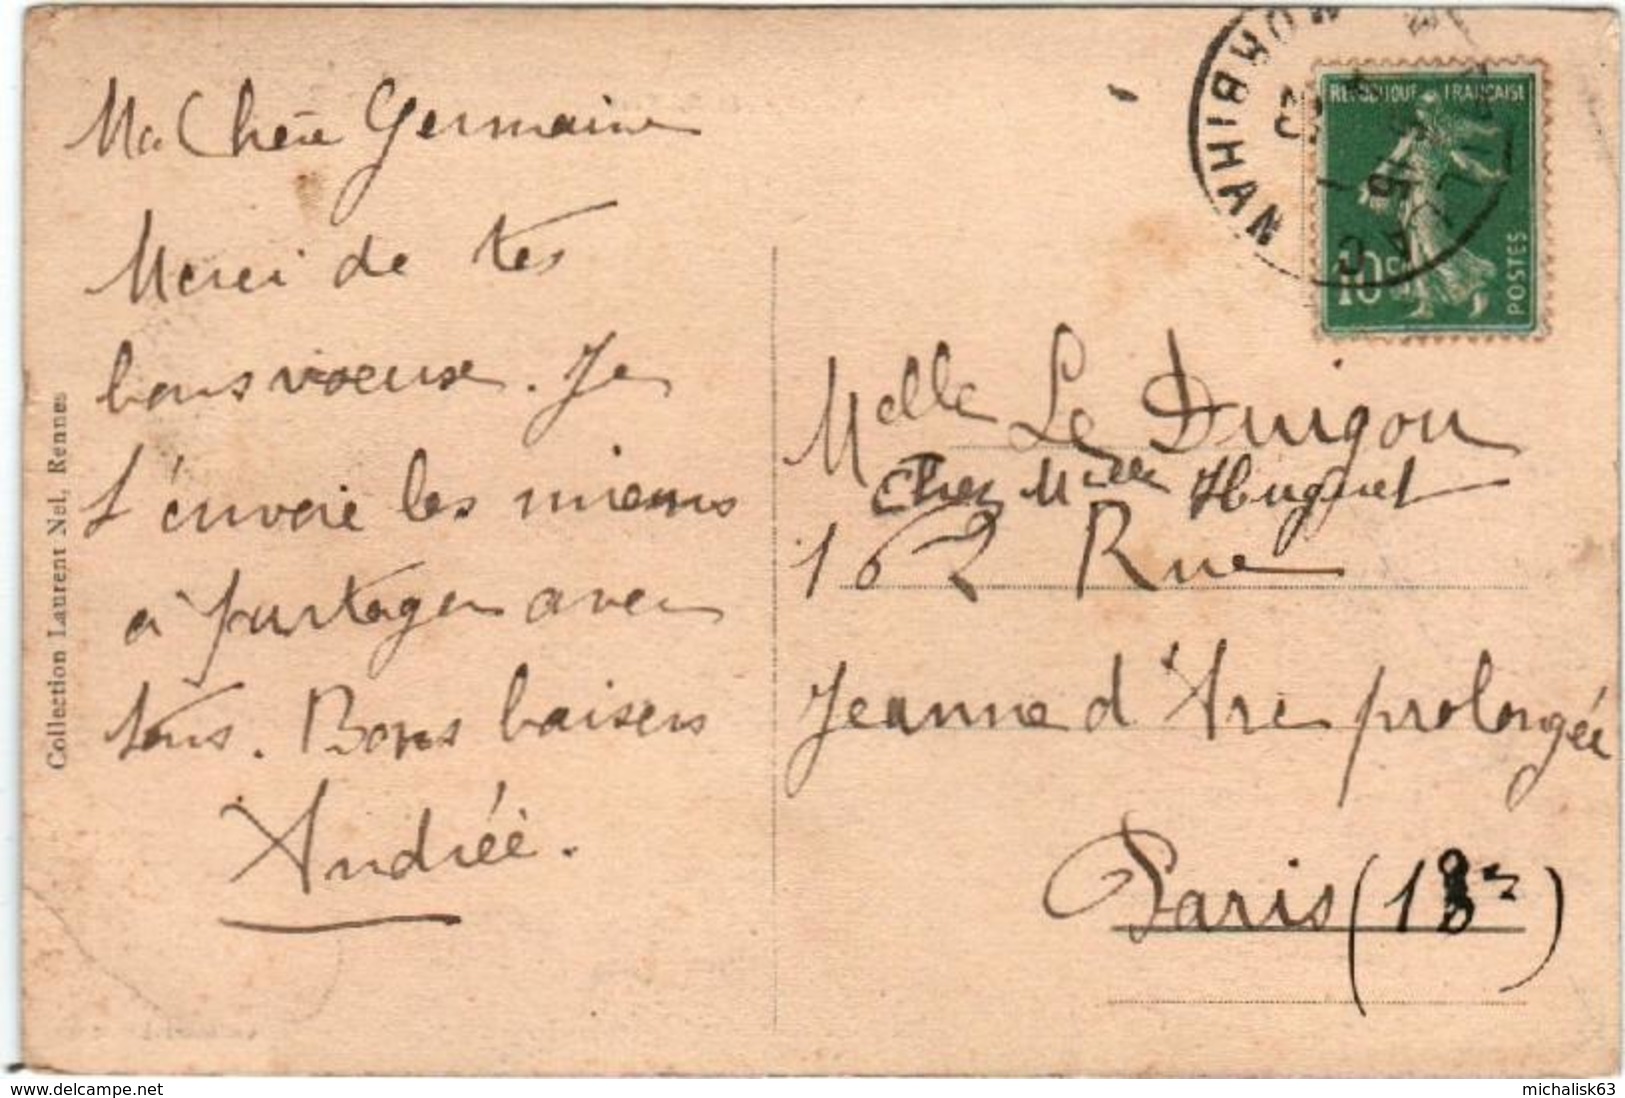 Ma Chère Germaine
Merci de tes
bons voeux. Je
t'envoie les miens
à partager avec
tous. Bons baisers
Andrée.
Collection Laurent Nel, Rennes
MORBIHAN
REPUBLIQUE FRANCAISE
10c
POSTES
Melle Le Duigou
Chez Melle Huguet
162 Rue
Jeanne d'Arc prolongée
Paris (13
www.delcampe.net
michalisk63